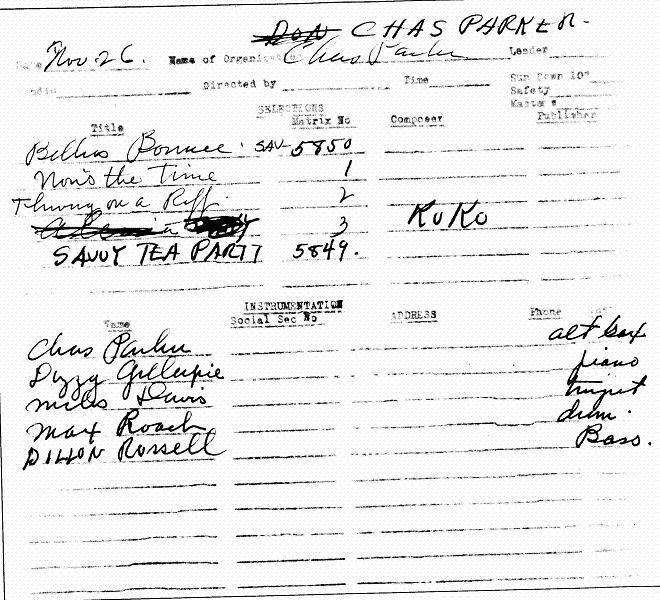 DON CHAS PARKER.
Date Nov 26. Name of Organization Chas Parker Leader
Directed by Time Sun Down 10"
Safety
Master s
SELECTIONS
Title Matrix No Composer Publisher
Billies Bounce SAV-5850
Now's the Time 1
Thriving on a Riff 2
a 3 KoKo
SAVOY TEA PARTY 5849.
INSTRUMENTATION
Name Social Sec No ADDRESS Phone
Chas Parker alt sax
Dizzy Gillespie piano
Miles Davis trumpet
Max Roach drum.
DILLON Russell Bass.